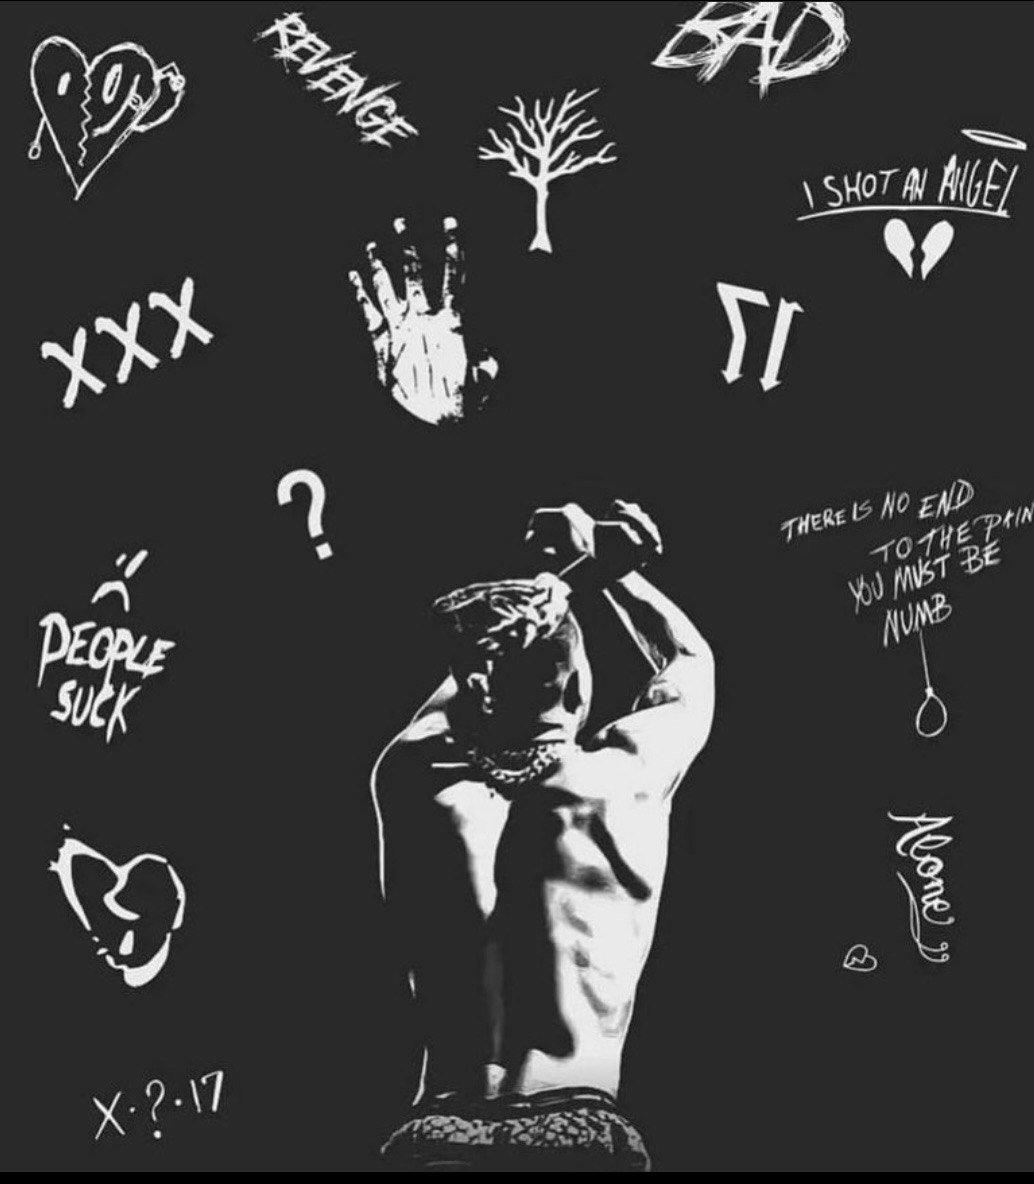 REVENGE
BAD
I SHOT AN ANGEL
XXX
17
?
THERE IS NO END
TO THE PAIN
YOU MUST BE
NUMB
PEOPLE
SUCK
Alone
X.?.17